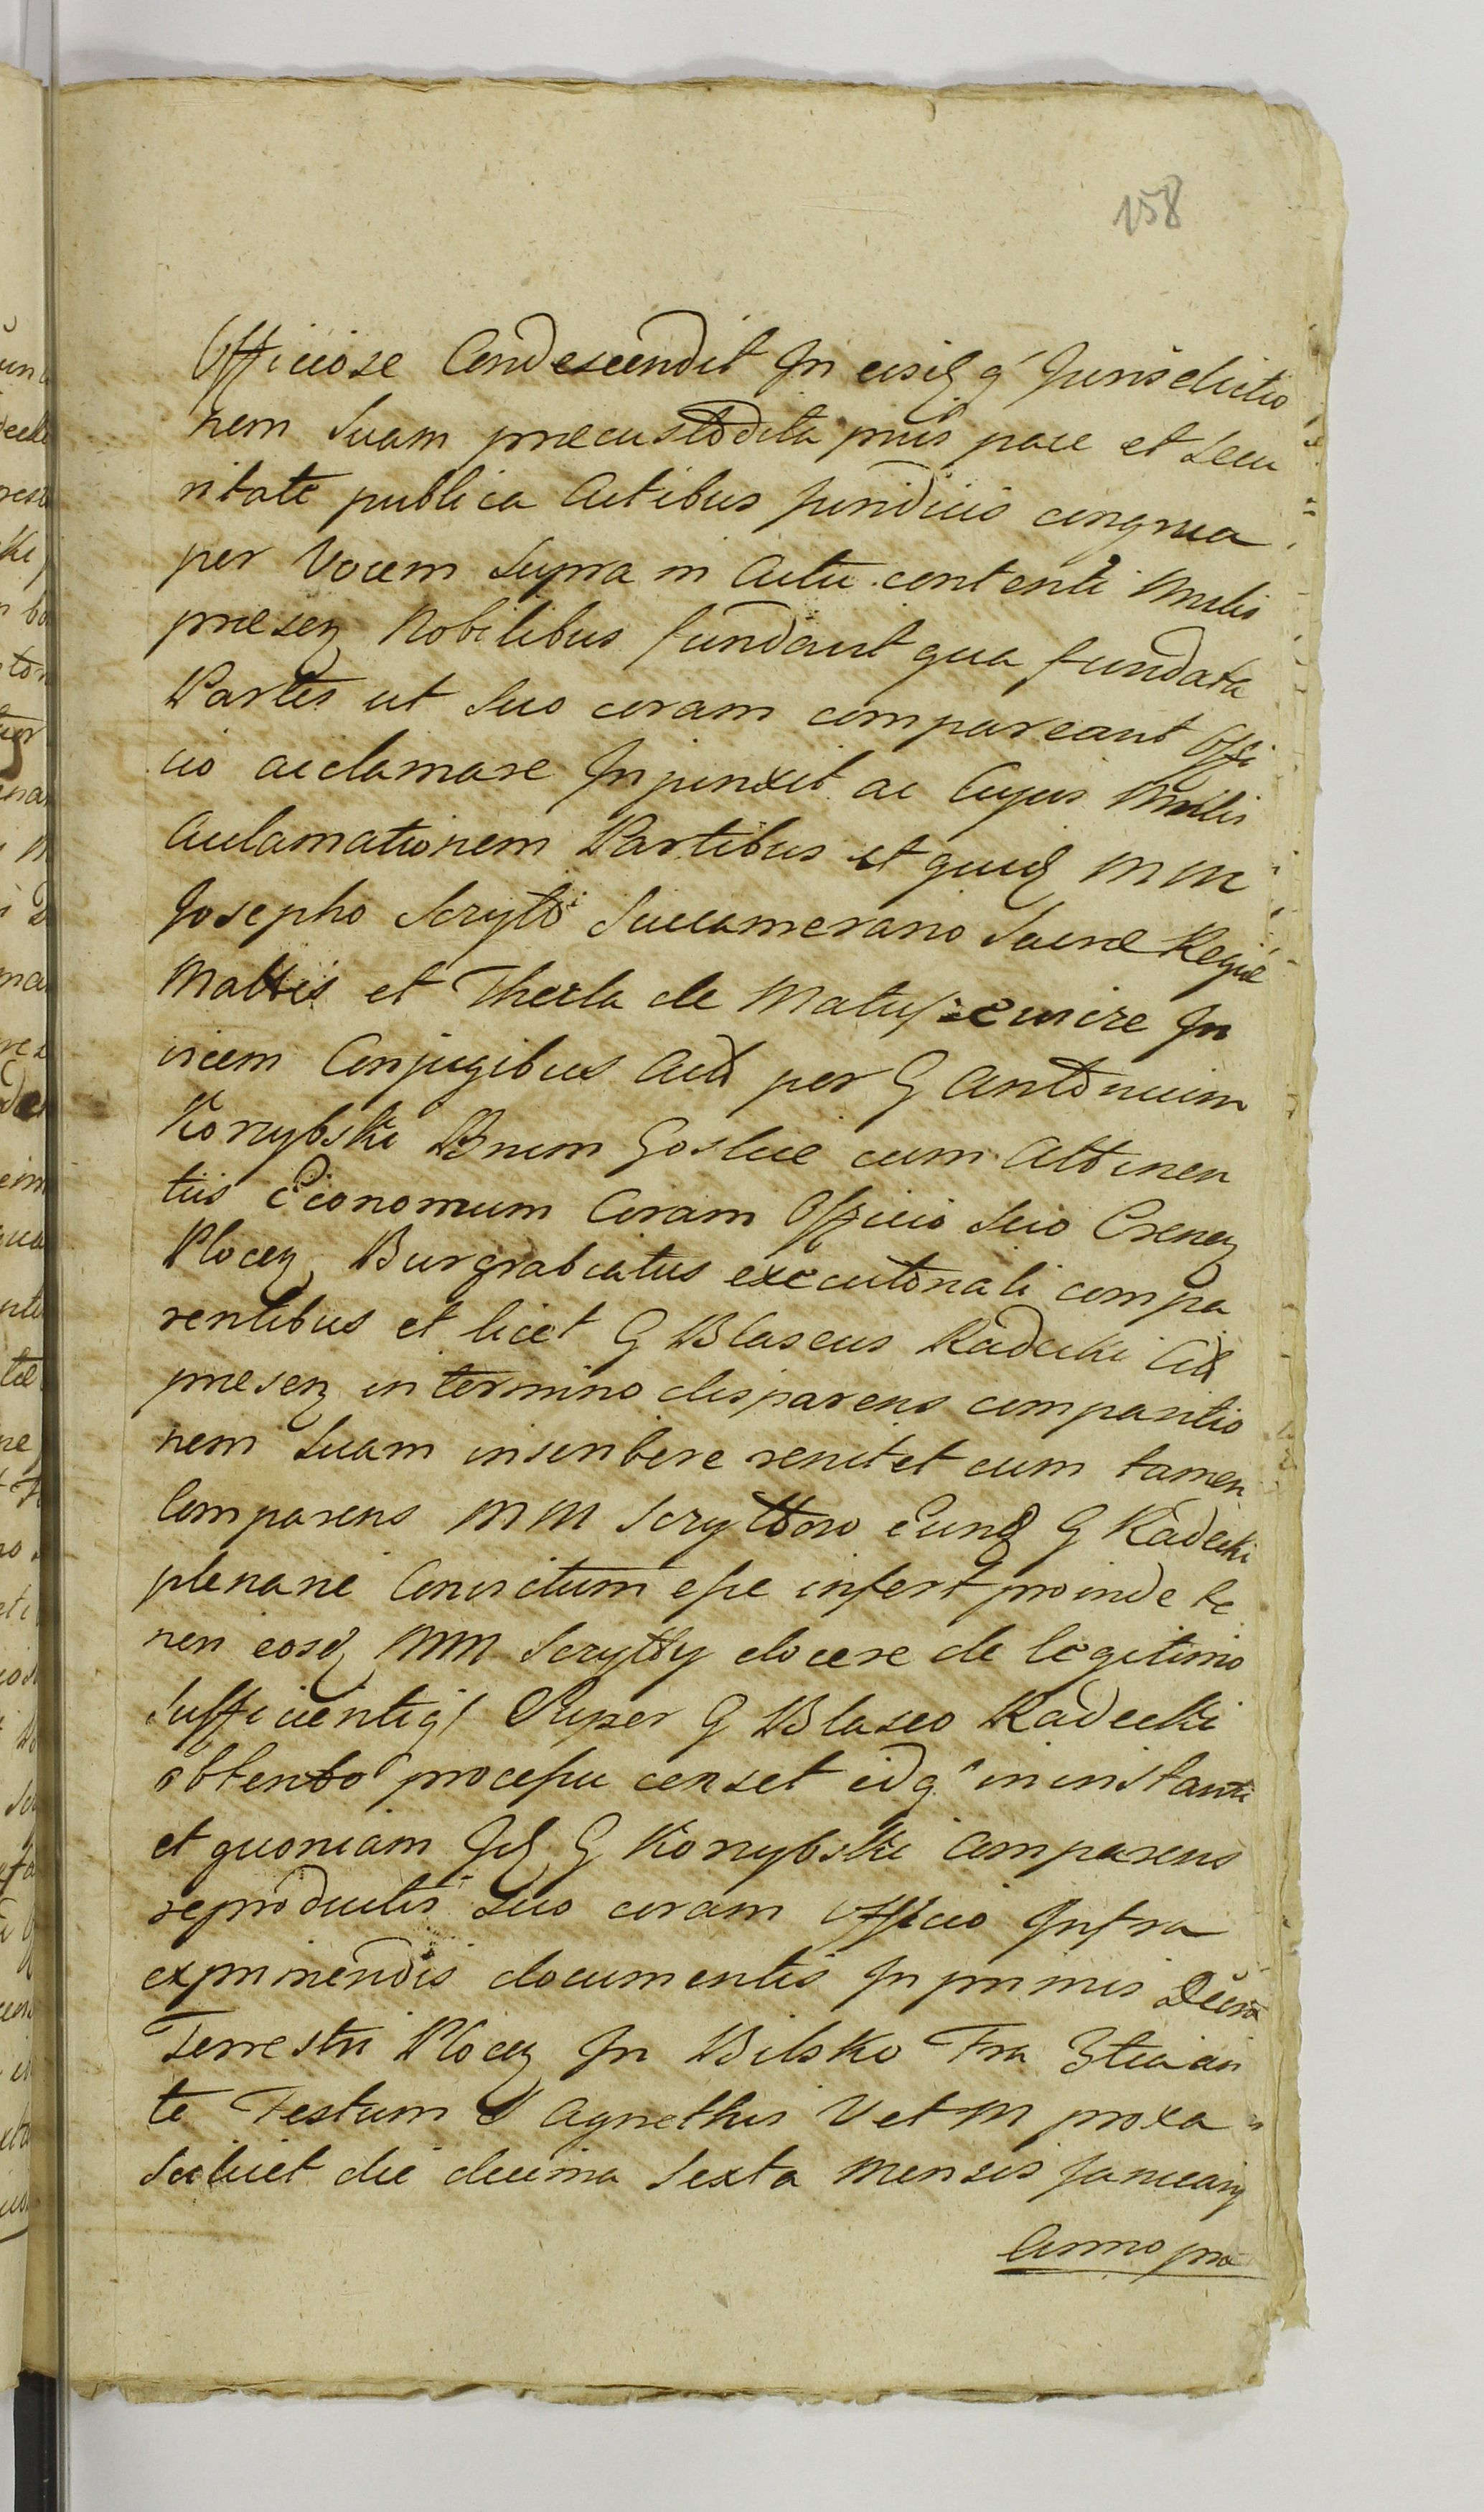 158
Officiose Condescendit In eisq q́ Jurisdictio
nem Suam praecustodita prius pace et Secu
ritate publica Actibus Juridicis congrua
per Vocem Supra in Actu contenti Mnlis
praesen Nobilibus fundavit qua fundata
Partes ut Suo coram compareant Offi
cio acclamare Injunxit ac Cujus Mnlis
Acclamationem Partibus et quid MM
Josepho Scrytti Succamerario Sacrae Regiae
Mattis et Thecla de Matuszewicze In
vicem Conjugibus Act per G Antonium
Korzybski Bnum Goslice cum Attinen
tiis Economum Coram Officio Suo Crenen
Plocen Burgrabiatus executoriali compa
rentibus et licet G Blaseus Radecki Cit
praesen in termino disparens comparitio
nem Suam inscribere renitet cum tamen
Comparens MM Scryttow Eund G Radecki
plenarie Convictum esse infert proinde te
neri eosd MM Scrytty docere de legitimo
Sufficientiq Super G Blaseo Radecki
obtento processu censet idq in instanti
et quoniam Id G Korzybski Comparens
reproductis Suo coram officio Infra
exprimendis documentis In primis Decro
Terrestri Plocen In Bilsko Fra 3tia an
te Festum S Agnethis V et M proxa
Scilicet die decima Sexta mensis Januarij
Anno prae